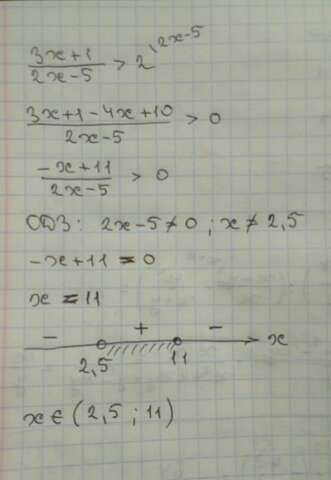 (3x+1)/(2x-5) > 2^(2x-5
(3x+1-4x+10)/(2x-5) > 0
(-x+11)/(2x-5) > 0
ОДЗ: 2x-5≠0; x≠2,5
-x+11=0
x=11
- + - x
2,5 11
x∈(2,5; 11)